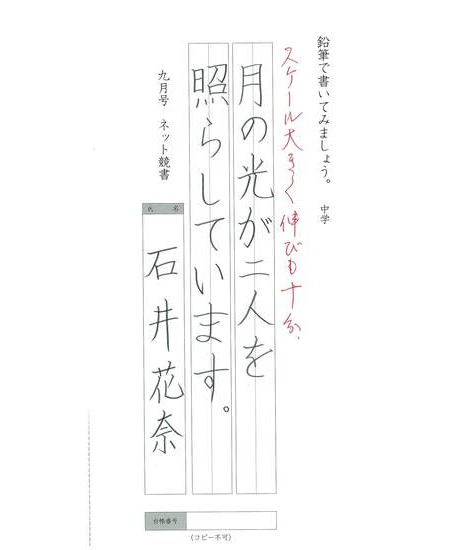 鉛筆で書いてみましょう。 中学
スケール大きく伸びも十分、
月の光が二人を
照らしています。
九月号 ネット競書
氏 名
石井花奈
台帳番号
(コピー不可)